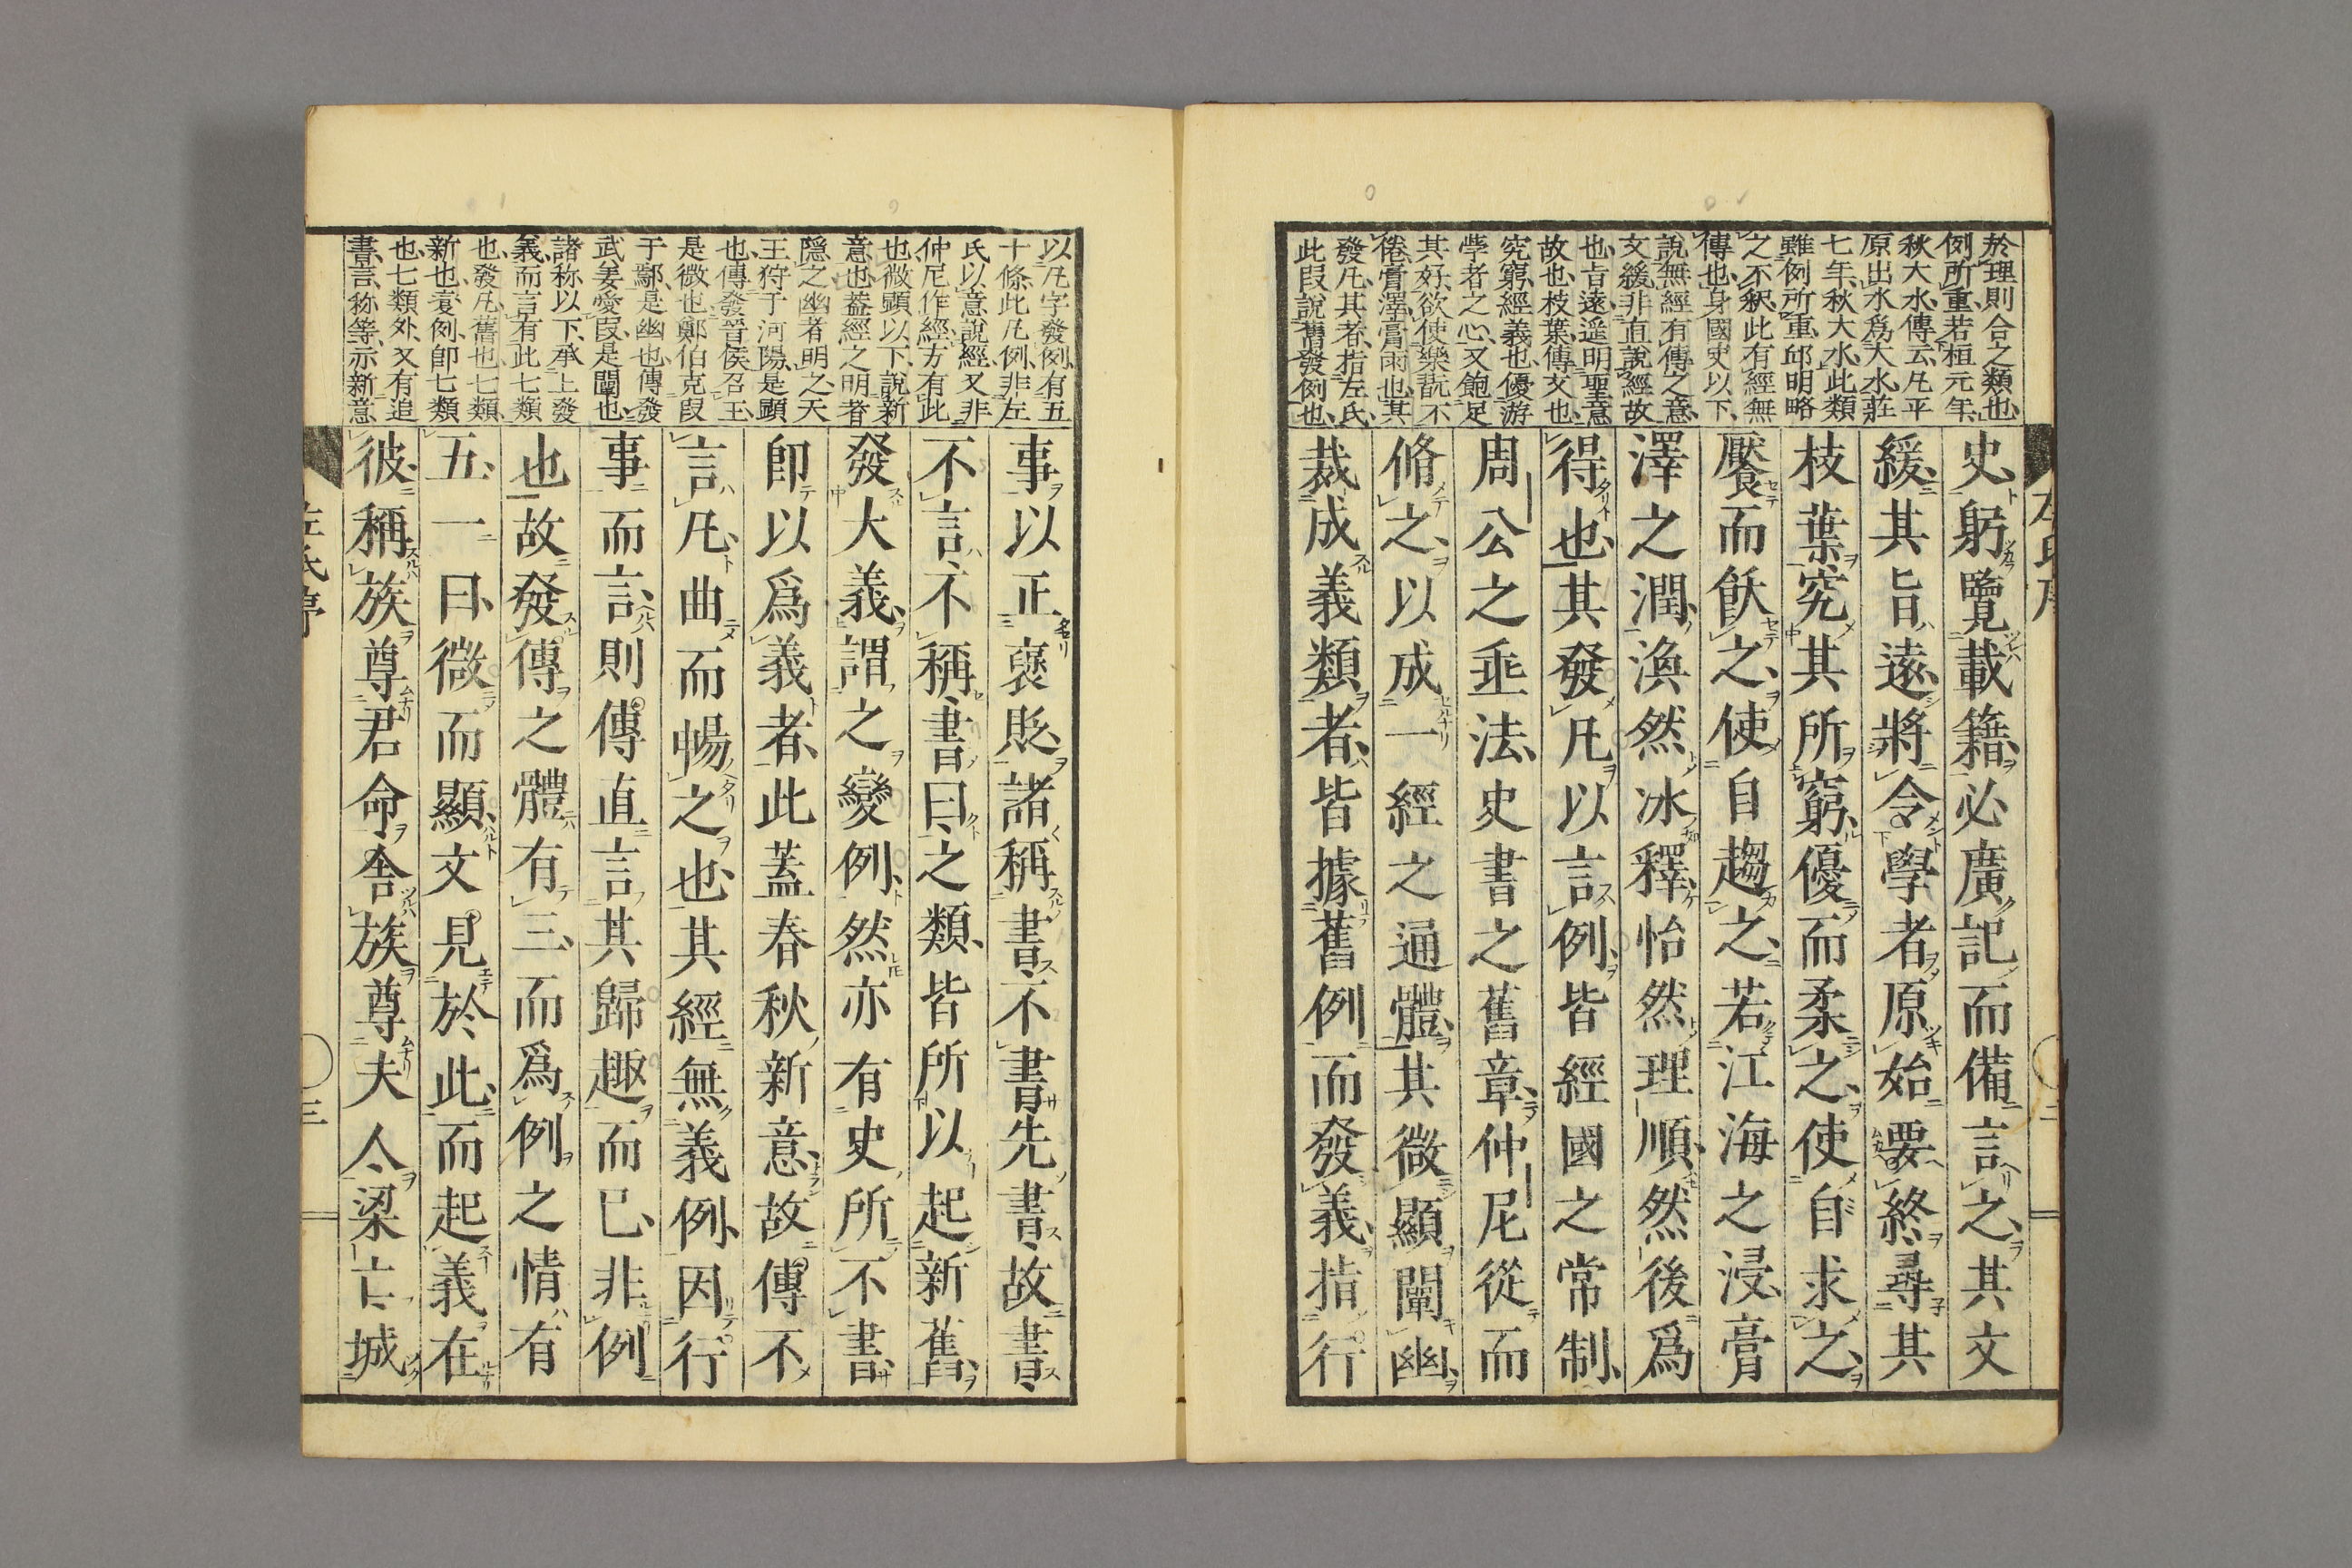 於理則合之類也
例所重若桓元年
秋大水傳云凡平
原出水爲大水莊
七年秋大水此類
雖例所重邱明略
之不釈此有經無
傳也身國史以下
說無經有傳之意
文緩非直說經故
也旨遠遥明聖意
故也枝葉傳文也
究窮經義也優游
斈者之心又飽足
其好欲使樂翫不
倦膏澤膏雨也其
發凡其者指左氏
此段說舊發例也
史躬覽載籍必廣記而備言之其文
緩其旨遠將令學者原始要終尋其
枝葉究其所窮優而柔之使自求之
饜而飫之使自趨之若江海之浸膏
澤之潤渙然冰釋怡然理順然後爲
得也其發凡以言例皆經國之常制
周公之垂法史書之舊章仲尼從而
脩之以成一經之通體其微顯闡幽
裁成義類者皆據舊例而發義指行
二
以凡字發例有五
十條此凡例非左
氏以意說經又非
仲尼作經方有此
也微顯以下說新
意也蓋經之明者
隱之幽者明之天
王狩于河陽是顯
也傳發晋侯召王
是微也鄭伯克段
于鄢是幽也傳發
武姜愛段是闡也
諸称以下承上發
義而言有此七類
也發凡舊也七類
新也変例即七類
也七類外又有追
書言称等示新意
事以正褒貶諸稱書不書先書故書
不言不稱書曰之類皆所以起新舊
發大義謂之變例然亦有史所不書
即以爲義者此蓋春秋新意故傳不
言凡曲而暢之也其經無義例因行
事而言則傳直言其歸趣而已非例
也故發傳之體有三而爲例之情有
五一曰微而顯文見於此而起義在
彼稱族尊君命舍族尊夫人梁亡城
左氏序
三